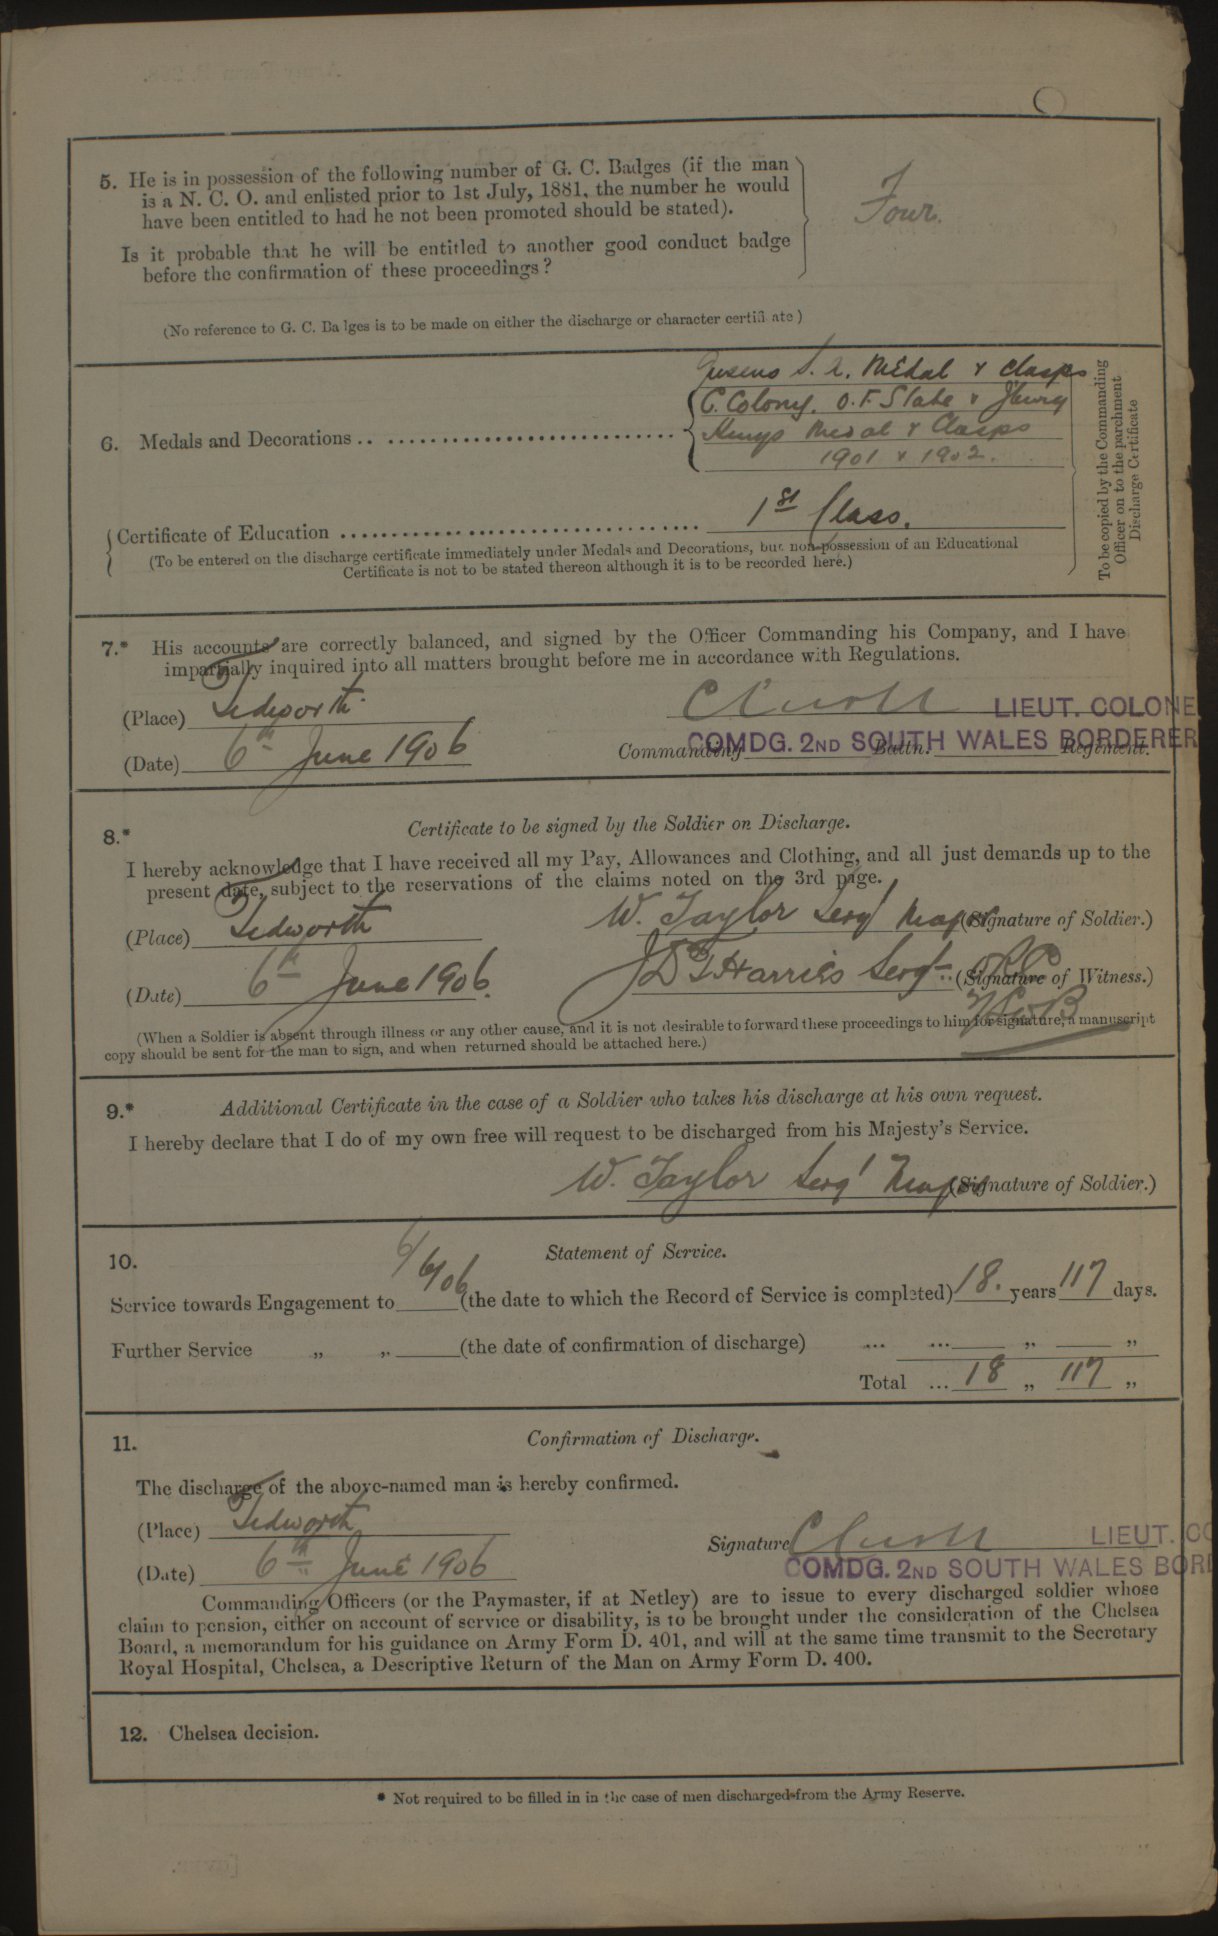 5. He is in possession of the following number of G. C. Badges (if the man
is a N. C. O. and enlisted prior to 1st July, 1881, the number he would
have been entitled to had he not been promoted should be stated).
Four.
Is it probable that he will be entitled to another good conduct badge
before the confirmation of these proceedings?
(No reference to G. C. Badges is to be made on either the discharge or character certificate)
Queens S. A. Medal & Clasps
C. Colony. O. F. State & J'burg
6. Medals and Decorations
Kings Medal & Clasps
1901 & 1902.
Certificate of Education 1st Class.
(To be entered on the discharge certificate immediately under Medals and Decorations, but non-possession of an Educational
Certificate is not to be stated thereon although it is to be recorded here.)
To be copied by the Commanding
Officer on to the parchment
Discharge Certificate
7.* His accounts are correctly balanced, and signed by the Officer Commanding his Company, and I have
impartially inquired into all matters brought before me in accordance with Regulations.
(Place) Tedworth
LIEUT. COLONE
(Date) 6th June 1906
Commanding Battn. Regiment.
COMDG. 2ND SOUTH WALES BORDERER
8.* Certificate to be signed by the Soldier on Discharge.
I hereby acknowledge that I have received all my Pay, Allowances and Clothing, and all just demands up to the
present date, subject to the reservations of the claims noted on the 3rd page.
(Place) Tedworth W. Taylor Sergt Major (Signature of Soldier.)
(Date) 6th June 1906. Harries Sergt (Signature of Witness.)
(When a Soldier is absent through illness or any other cause, and it is not desirable to forward these proceedings to him for signature, a manuscript
copy should be sent for the man to sign, and when returned should be attached here.)
9.* Additional Certificate in the case of a Soldier who takes his discharge at his own request.
I hereby declare that I do of my own free will request to be discharged from his Majesty's Service.
W. Taylor Sergt Major (Signature of Soldier.)
10. Statement of Service.
Service towards Engagement to 6/6/06 (the date to which the Record of Service is completed) 18. years 117 days.
Further Service „ „ (the date of confirmation of discharge) ... ... „ „
Total ... 18 „ 117 „
11. Confirmation of Discharge.
The discharge of the above-named man is hereby confirmed.
(Place) Tedworth
Signature LIEUT. CO
(Date) 6th June 1906
COMDG. 2ND SOUTH WALES BORD
Commanding Officers (or the Paymaster, if at Netley) are to issue to every discharged soldier whose
claim to pension, either on account of service or disability, is to be brought under the consideration of the Chelsea
Board, a memorandum for his guidance on Army Form D. 401, and will at the same time transmit to the Secretary
Royal Hospital, Chelsea, a Descriptive Return of the Man on Army Form D. 400.
12. Chelsea decision.
* Not required to be filled in in the case of men discharged from the Army Reserve.